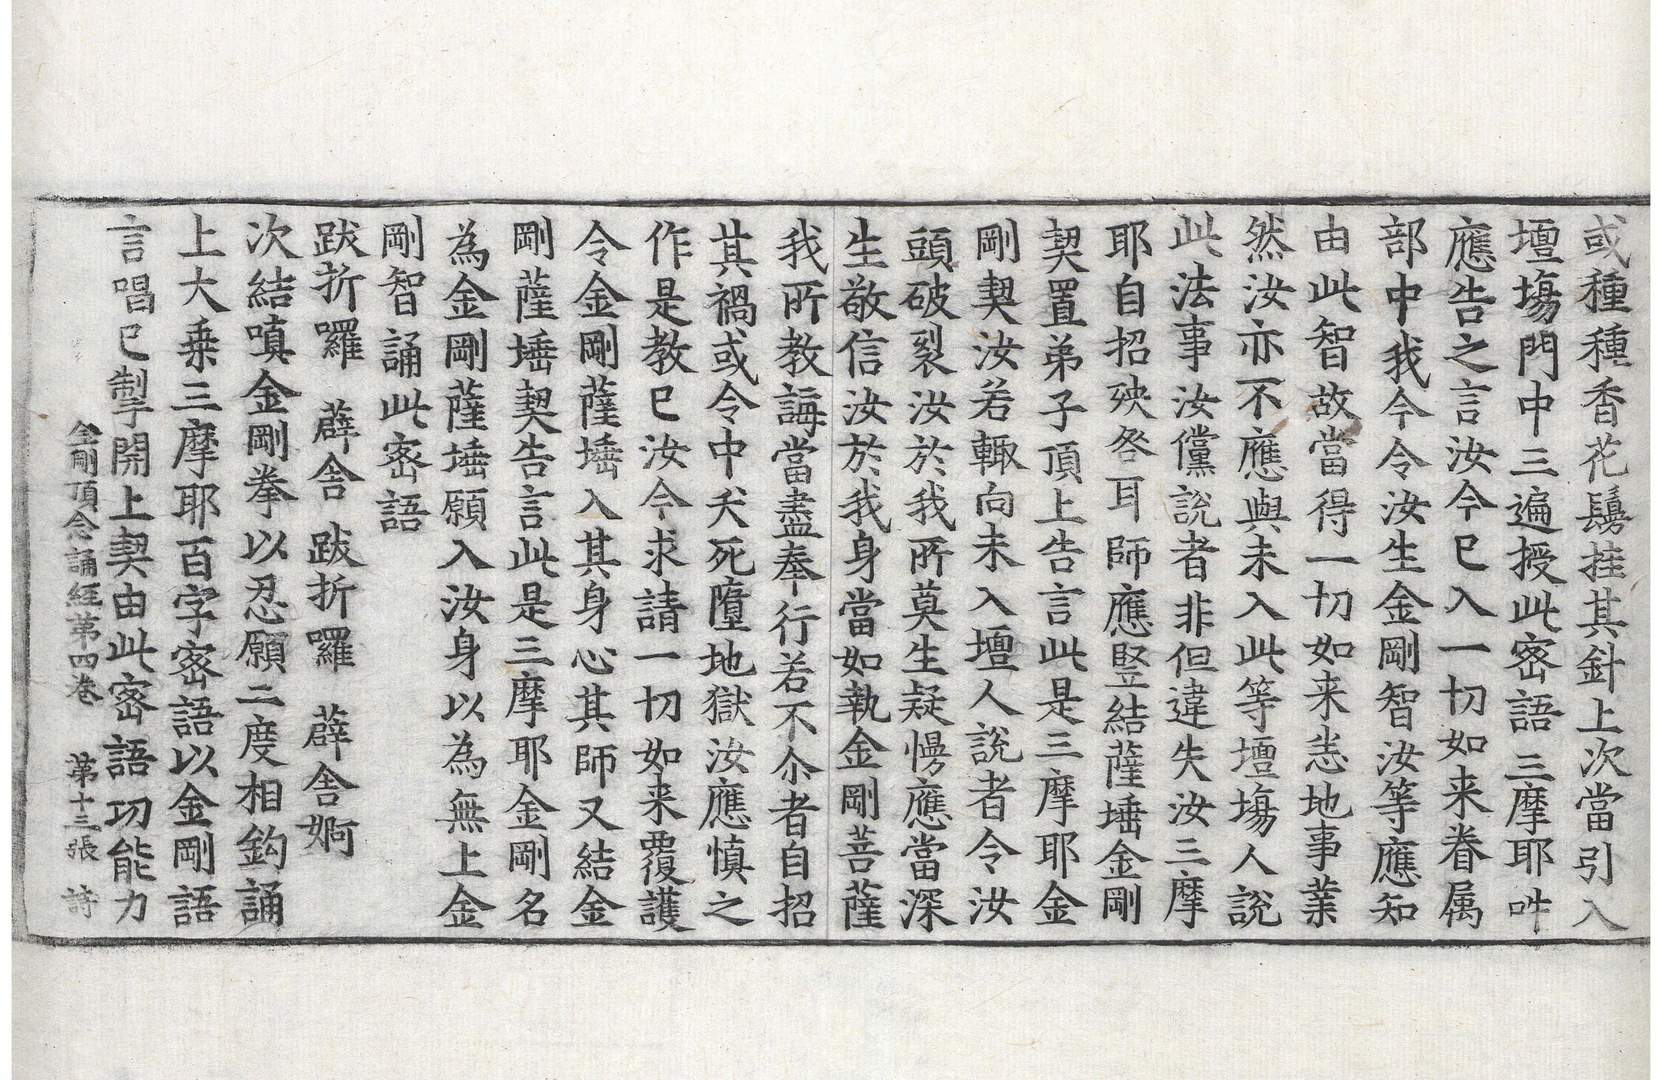 或種種香花鬘挂其針上次當引入
壇場門中三遍授此密語三摩耶吽
應告之言汝今已入一切如来眷属
部中我今令汝生金剛智汝等應知
由此智故當得一切如来悉地事業
然汝亦不應與未入此等壇場人說
此法事汝儻說者非但違失汝三摩
耶自招殃咎耳師應竪結薩埵金剛
契置弟子頂上告言此是三摩耶金
剛契汝若輙向未入壇人說者令汝
頭破裂汝於我所莫生疑慢應當深
生敬信汝於我身當如執金剛菩薩
我所教誨當盡奉行若不尒者自招
其禍或令中夭死墮地獄汝應慎之
作是教已汝今求請一切如来覆護
令金剛薩埵入其身心其師又結金
剛薩埵契告言此是三摩耶金剛名
為金剛薩埵願入汝身以為無上金
剛智誦此密語
跋折囉　薜舍　跋折囉　薜舍婀
次結嗔金剛拳以忍願二度相鈎誦
上大乗三摩耶百字密語以金剛語
言唱已掣開上契由此密語功能力
金剛頂念誦經第四卷　第十三張　詩